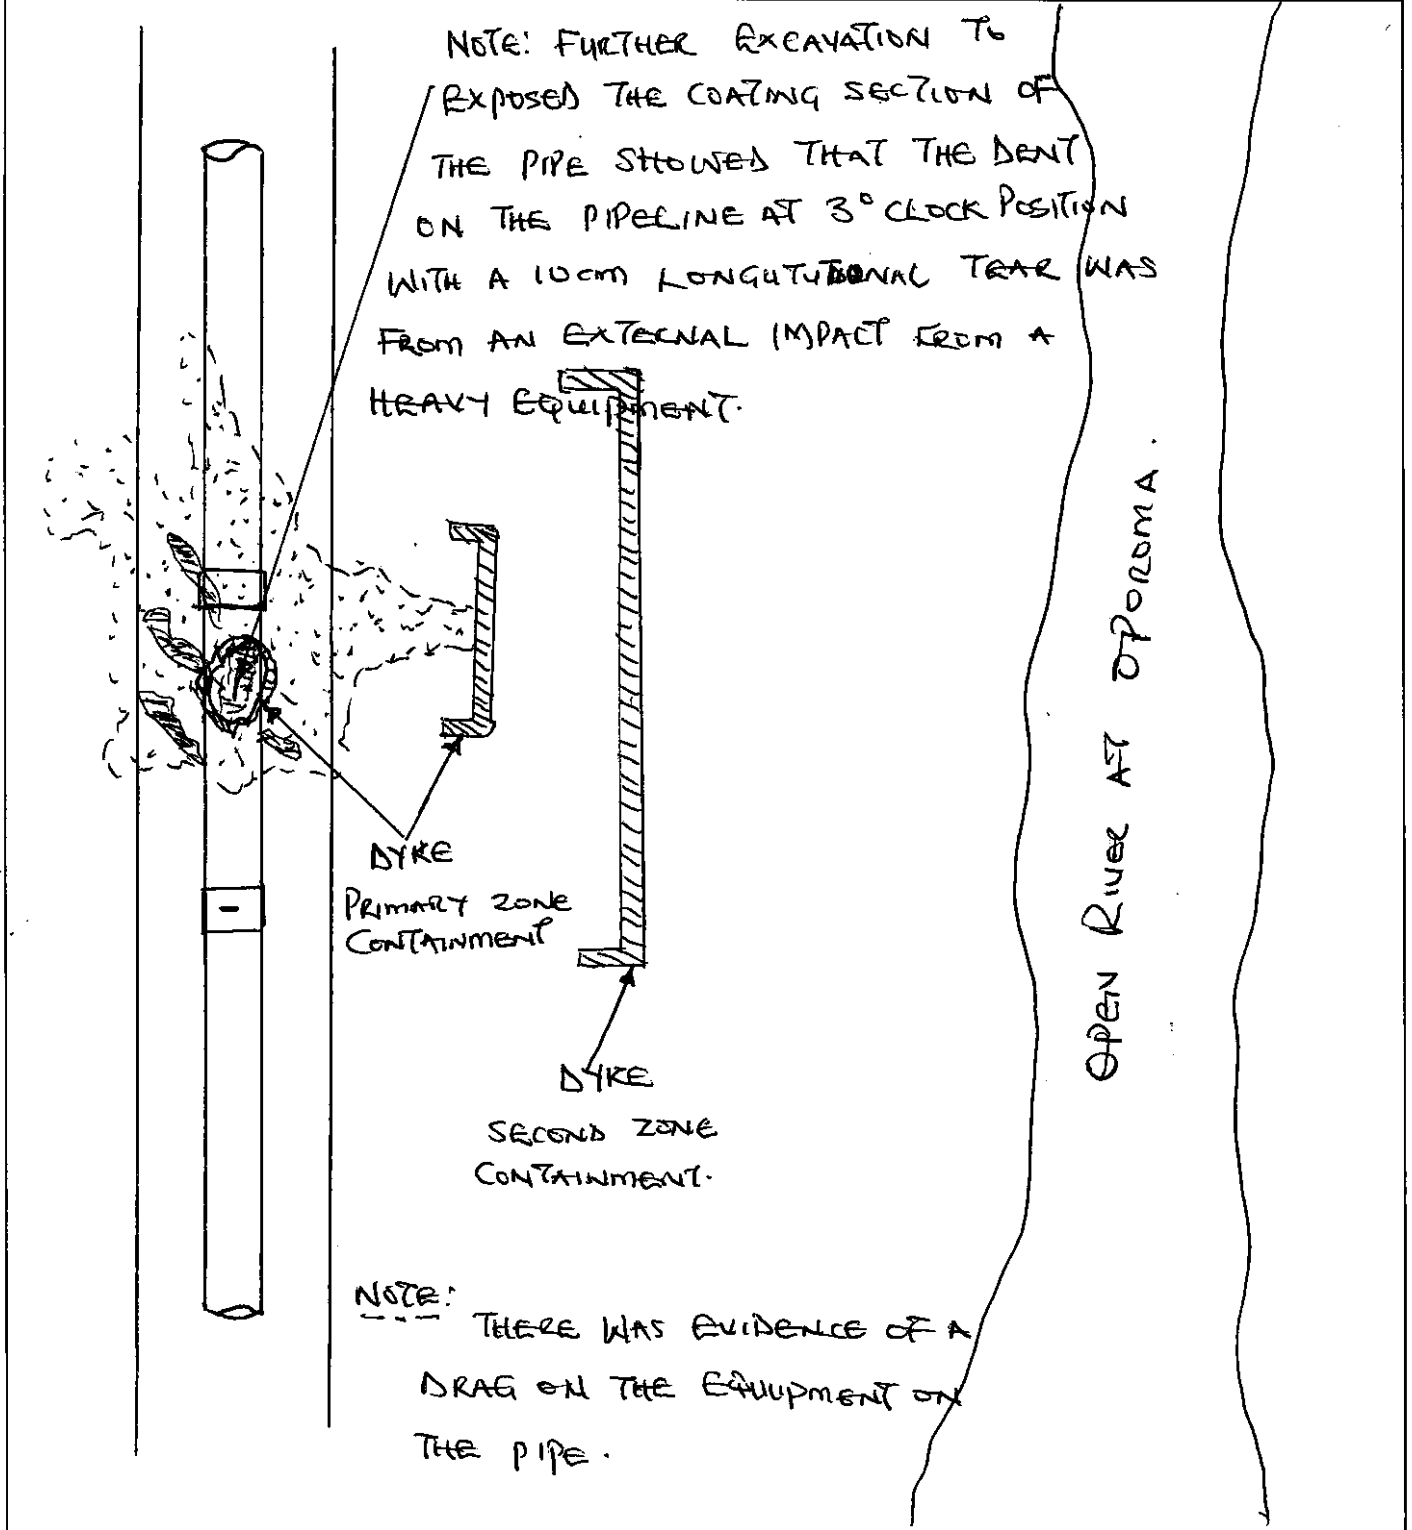 NOTE: FURTHER EXCAVATION TO
EXPOSED THE COATING SECTION OF
THE PIPE SHOWED THAT THE DENT
ON THE PIPELINE AT 3° CLOCK POSITION
WITH A 10cm LONGUTUDONAL TEAR WAS
FROM AN EXTERNAL IMPACT FROM A
HEAVY EQUIPMENT.
DYKE
PRIMARY ZONE
CONTAINMENT
DYKE
SECOND ZONE
CONTAINMENT.
OPEN RIVER AT OPOROMA.
NOTE:
THERE WAS EVIDENCE OF A
DRAG ON THE EQUIPMENT ON
THE PIPE.